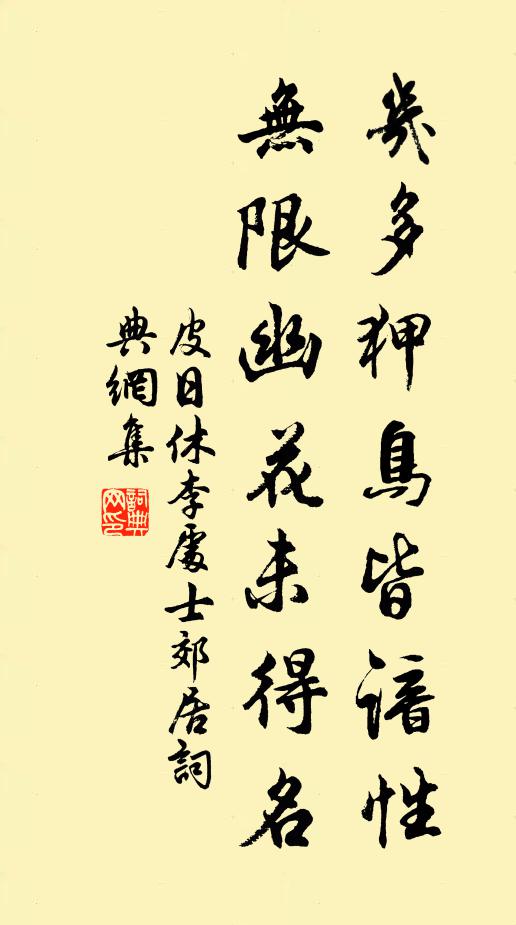 幾多狎鳥皆諳性
無限幽花未得名
皮日休李處士郊居詞
典網集
詞典
网印